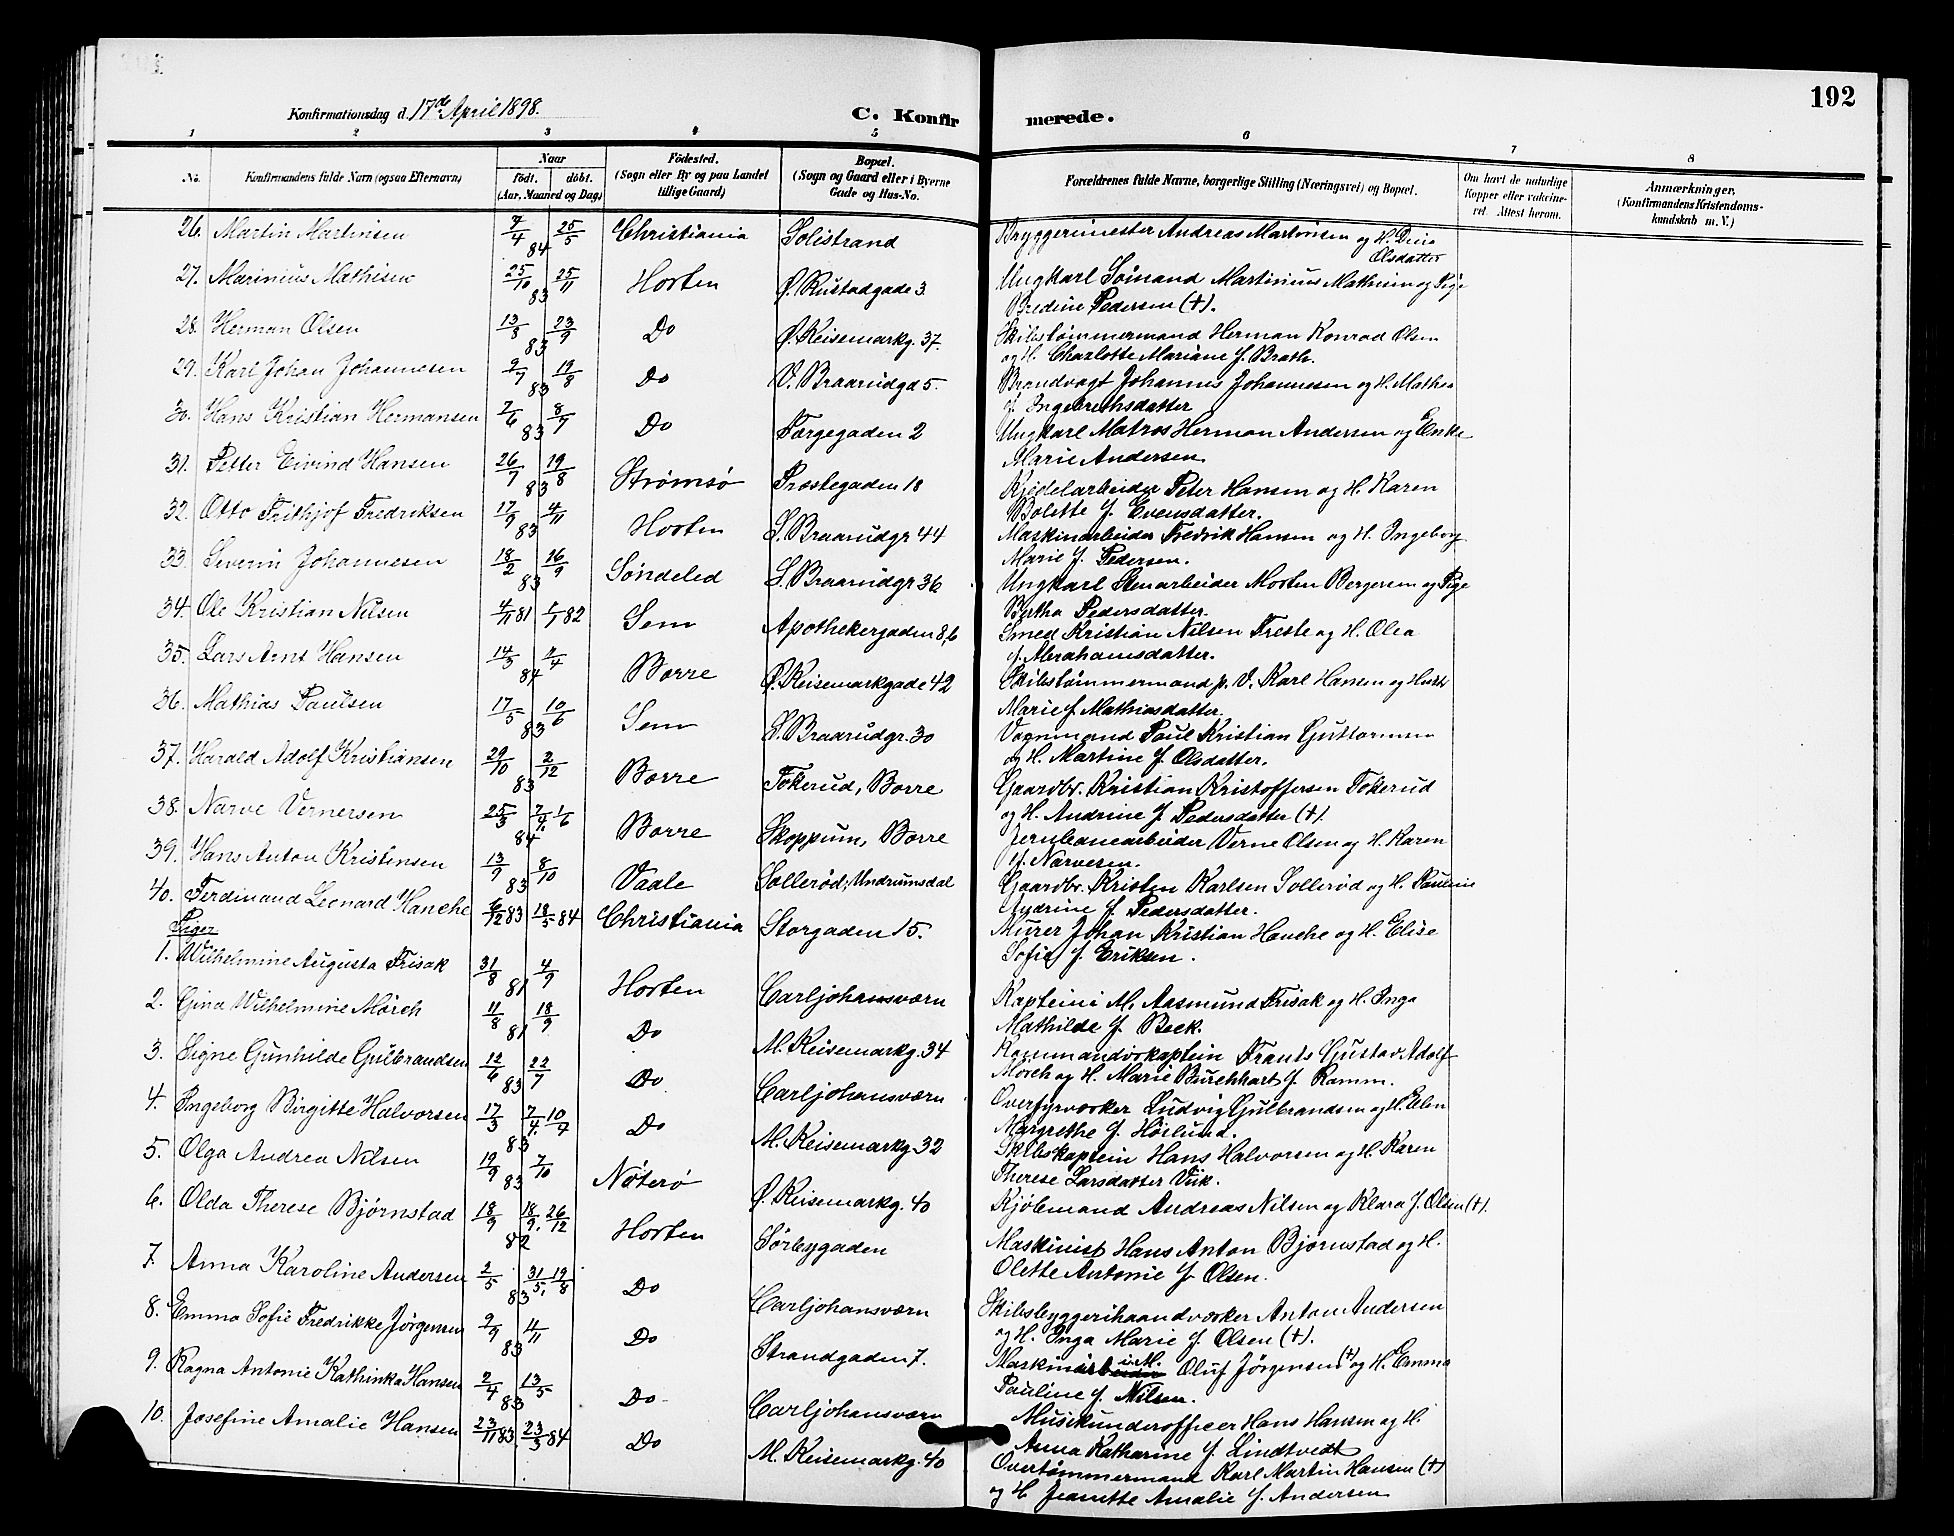 192
Konfirmationsdag d. 17de April 1898.
C. Konfirmerede.
1 2 3 4 5 6 7 8
No. Konfirmandens fulde Navn (ogsaa Efternavn) Naar Födt. döbt. (Aar, Maaned og Dag) Födested. (Sogn eller By og paa Landet tillige Gaard) Bopæl. (Sogn og Gaard eller i Byerne Gade og Hus-No. Forældrenes fulde Navne, borgerlige Stilling (Næringsvei) og Bopæl. Om havt de naturlige Kopper eller vaccineret. Attest herom. Anmærkninger, (Konfirmandens Kristendomskundskab m. V.)
26. Martin Martinsen 7/4 84 25/5 Christiania Solistrand Bryggerimester Andreas Martinsen og H.
Olsdatter
27. Marinius Mathisen 25/10 83 25/11 Horten Ø. Rustadgade 3 Ungkarl Sömand Martinius Mathisen og Pige
Bredine Pedersen (†).
28. Herman Olsen 13/8 83 23/9 Do Ø. Keisemarkg. 37. Skibstömmermand Herman Konrad Olsen
og H. Charlotte Mariane f. Brath.
29. Karl Johan Johannesen 9/7 83 19/8 Do V. Braarudgd 5 Brandvagt Johannes Johannesen og H. Mathea
f. Ingebrethsdatter
30. Hans Kristian Hermansen 7/6 83 8/7 Do Færgegaden 2 Ungkarl Matros Herman Andersen og Enke
Marie Andersen
31. Petter Eivind Hansen 26/7 83 19/8 Strømsø Præstegaden 18 Kjedelarbeider Peter Hansen og H. Karen
Bolette f. Evensdatter.
32. Otto Frithjof Fredriksen 17/9 83 4/11 Horten S. Braarudgr 44 Maskinarbeider Fredrik Hansen og H. Ingeborg
Marie f. Pedersen.
33. Severin Johannesen 18/2 83 16/9 Söndeled S. Braarudgr 36 Ungkarl Stenarbeider Morten Bergersen og Pige
Bertha Pedersdatter.
34. Ole Kristian Nilsen 4/11 81 1/1 82 Sem Apothekergaden 8,6 Smed Kristian Nilsen Freste og H. Olea
f. Abrahamsdatter.
35. Lars Arnt Hansen 14/3 84 Borre Ø. Keisemarkgade 42 Skibstömmermand p. V. Karl Hansen og Hustr
Marie f. Mathiasdatter.
36. Mathias Paulsen 17/5 83 10/6 Sem S. Braarudgr. 30 Vognmand Paul Kristian Guttormsen
og H. Martine f. Olsdatter.
37. Harald Adolf Kristiansen 29/10 83 2/12 Borre Fokerud, Borre Gaardbr. Kristian Kristoffersen Fokerud
og H. Andrine f. Pedersdatter (†).
38. Narve Vernersen 25/3 84 7/4. 1/6 Borre Skoppum, Borre Jernbanearbeider Verne Olsen og H. Karen
f. Narvesen.
39. Hans Anton Kristensen 13/9 83 8/10 Vaale Sollerød, Undrumsdal Gaardbr. Kristen Karlsen Sollerød og H. Pauline
Andrine f. Pedersdatter.
40. Ferdinand Leonard Hanche 6/12 83 18/5 84 Christiania Storgaden 15. Murer Johan Kristian Hanche og H. Elise
Sofie f. Eriksen.
Piger
1. Wilhelmine Augusta Frisak 31/8 81 4/9 Horten Carljohansværn Kaptein i M. Aasmund Frisak og H. Inga
Mathilde f. Beck.
2. Gina Wilhelmine Mörch 11/8 81 18/9 Do M. Keisemarkg. 34 Kommandørkaptein Frants Gustav Adolf
Mörch og H. Marie Burchhart f. Ramm.
3. Signe Gunhilde Gulbrandsen 12/6 83 22/7 Do Carljohansværn Overfyrværker Ludvig Gulbrandsen og H. Elen
Margrethe f. Höslund.
4. Ingeborg Birgitte Halvorsen 17/3 83 7/4. 10/7 Do M. Keisemarkg 32 Skibskaptein Hans Halvorsen og H. Karen
Therese Larsdatter Viik.
5. Olga Andrea Nilsen 19/9 83 7/10 Nøterø Ø. Keisemarkg. 40 Kjöbmand Andreas Nilsen og Klara f. Olsen (†).
6. Olda Therese Bjørnstad 18/9 82 18/9. 26/12 Horten Sørbygaden Maskinist Hans Anton Bjørnstad og H.
Olette Antonie f. Olsen.
7. Anna Karoline Andersen 2/5 83 31/5. 19/8 Do Carljohansværn Skibsbyggerihaandværker Anton Andersen
og H. Inga Marie f. Olsen (†).
8. Emma Sofie Fredrikke Jørgensen 2/9 83 4/11 Do Strandgaden 7. Oluf Jörgensen (†) og H. Emma
Pauline f. Nilsen.
9. Ragna Antonie Kathinka Hansen 2/4 83 13/5 Do Carljohansværn Musikunderofficer Hans Hansen og H.
Anna Katharine f. Lindtvedt
10. Josefine Amalie Hansen 23/11 83 23/3 84 Do M. Keisemarkg. 40 Overtömmermand Karl Martin Hansen (†)
og H. Jeanette Amalie f. Andersen